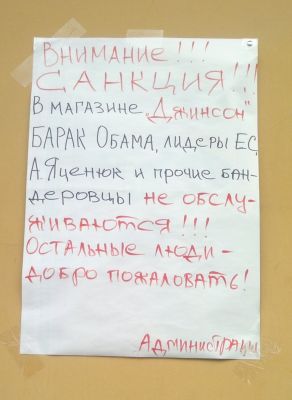 Внимание!!!
САНКЦИЯ!!!
В магазине „Джинсон"
БАРАК ОБАМА, лидеры ЕС,
А.Яценюк и прочие бан-
деровцы не обслу-
живаются!!!
Остальные люди -
добро пожаловать!
Администрация